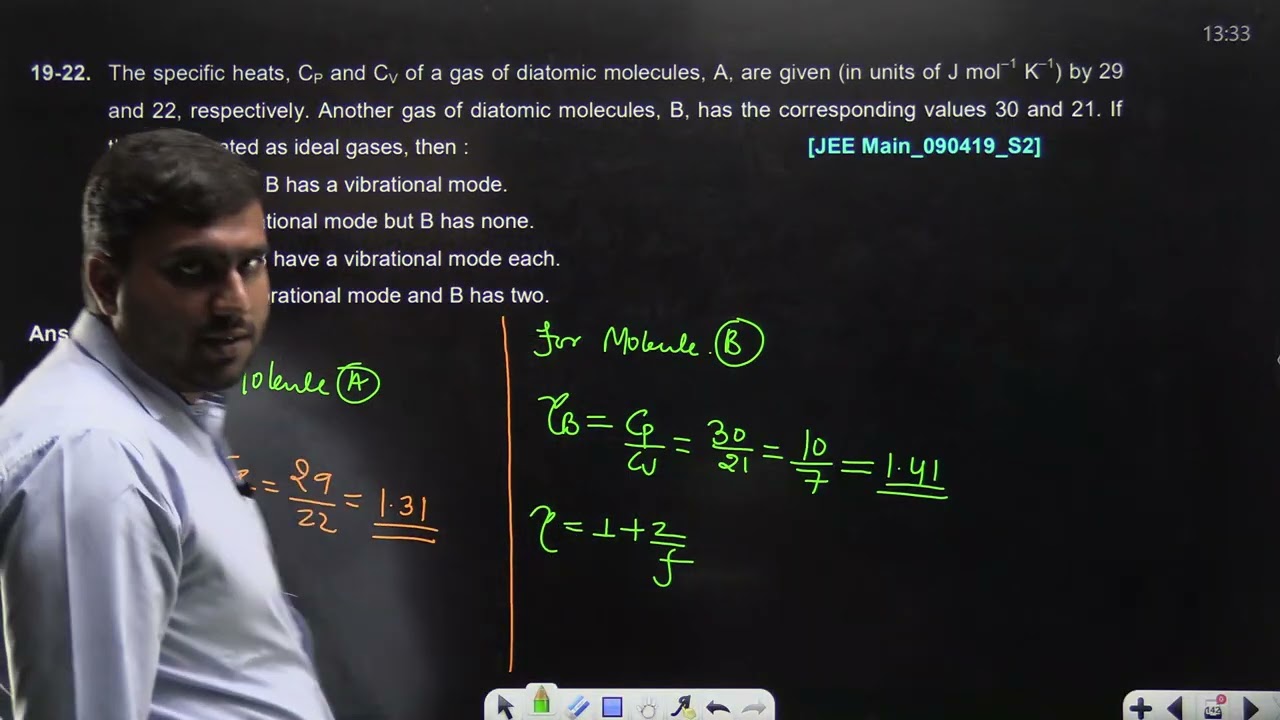 13:33
19-22. The specific heats, C_P and C_V of a gas of diatomic molecules, A, are given (in units of J mol⁻¹ K⁻¹) by 29
and 22, respectively. Another gas of diatomic molecules, B, has the corresponding values 30 and 21. If
ated as ideal gases, then :
[JEE Main_090419_S2]
B has a vibrational mode.
tional mode but B has none.
have a vibrational mode each.
rational mode and B has two.
Ans
olecule A
= 29/22 = 1.31
for Molecule B
γ_B = Cp/Cv = 30/21 = 10/7 = 1.41
γ = 1 + 2/f